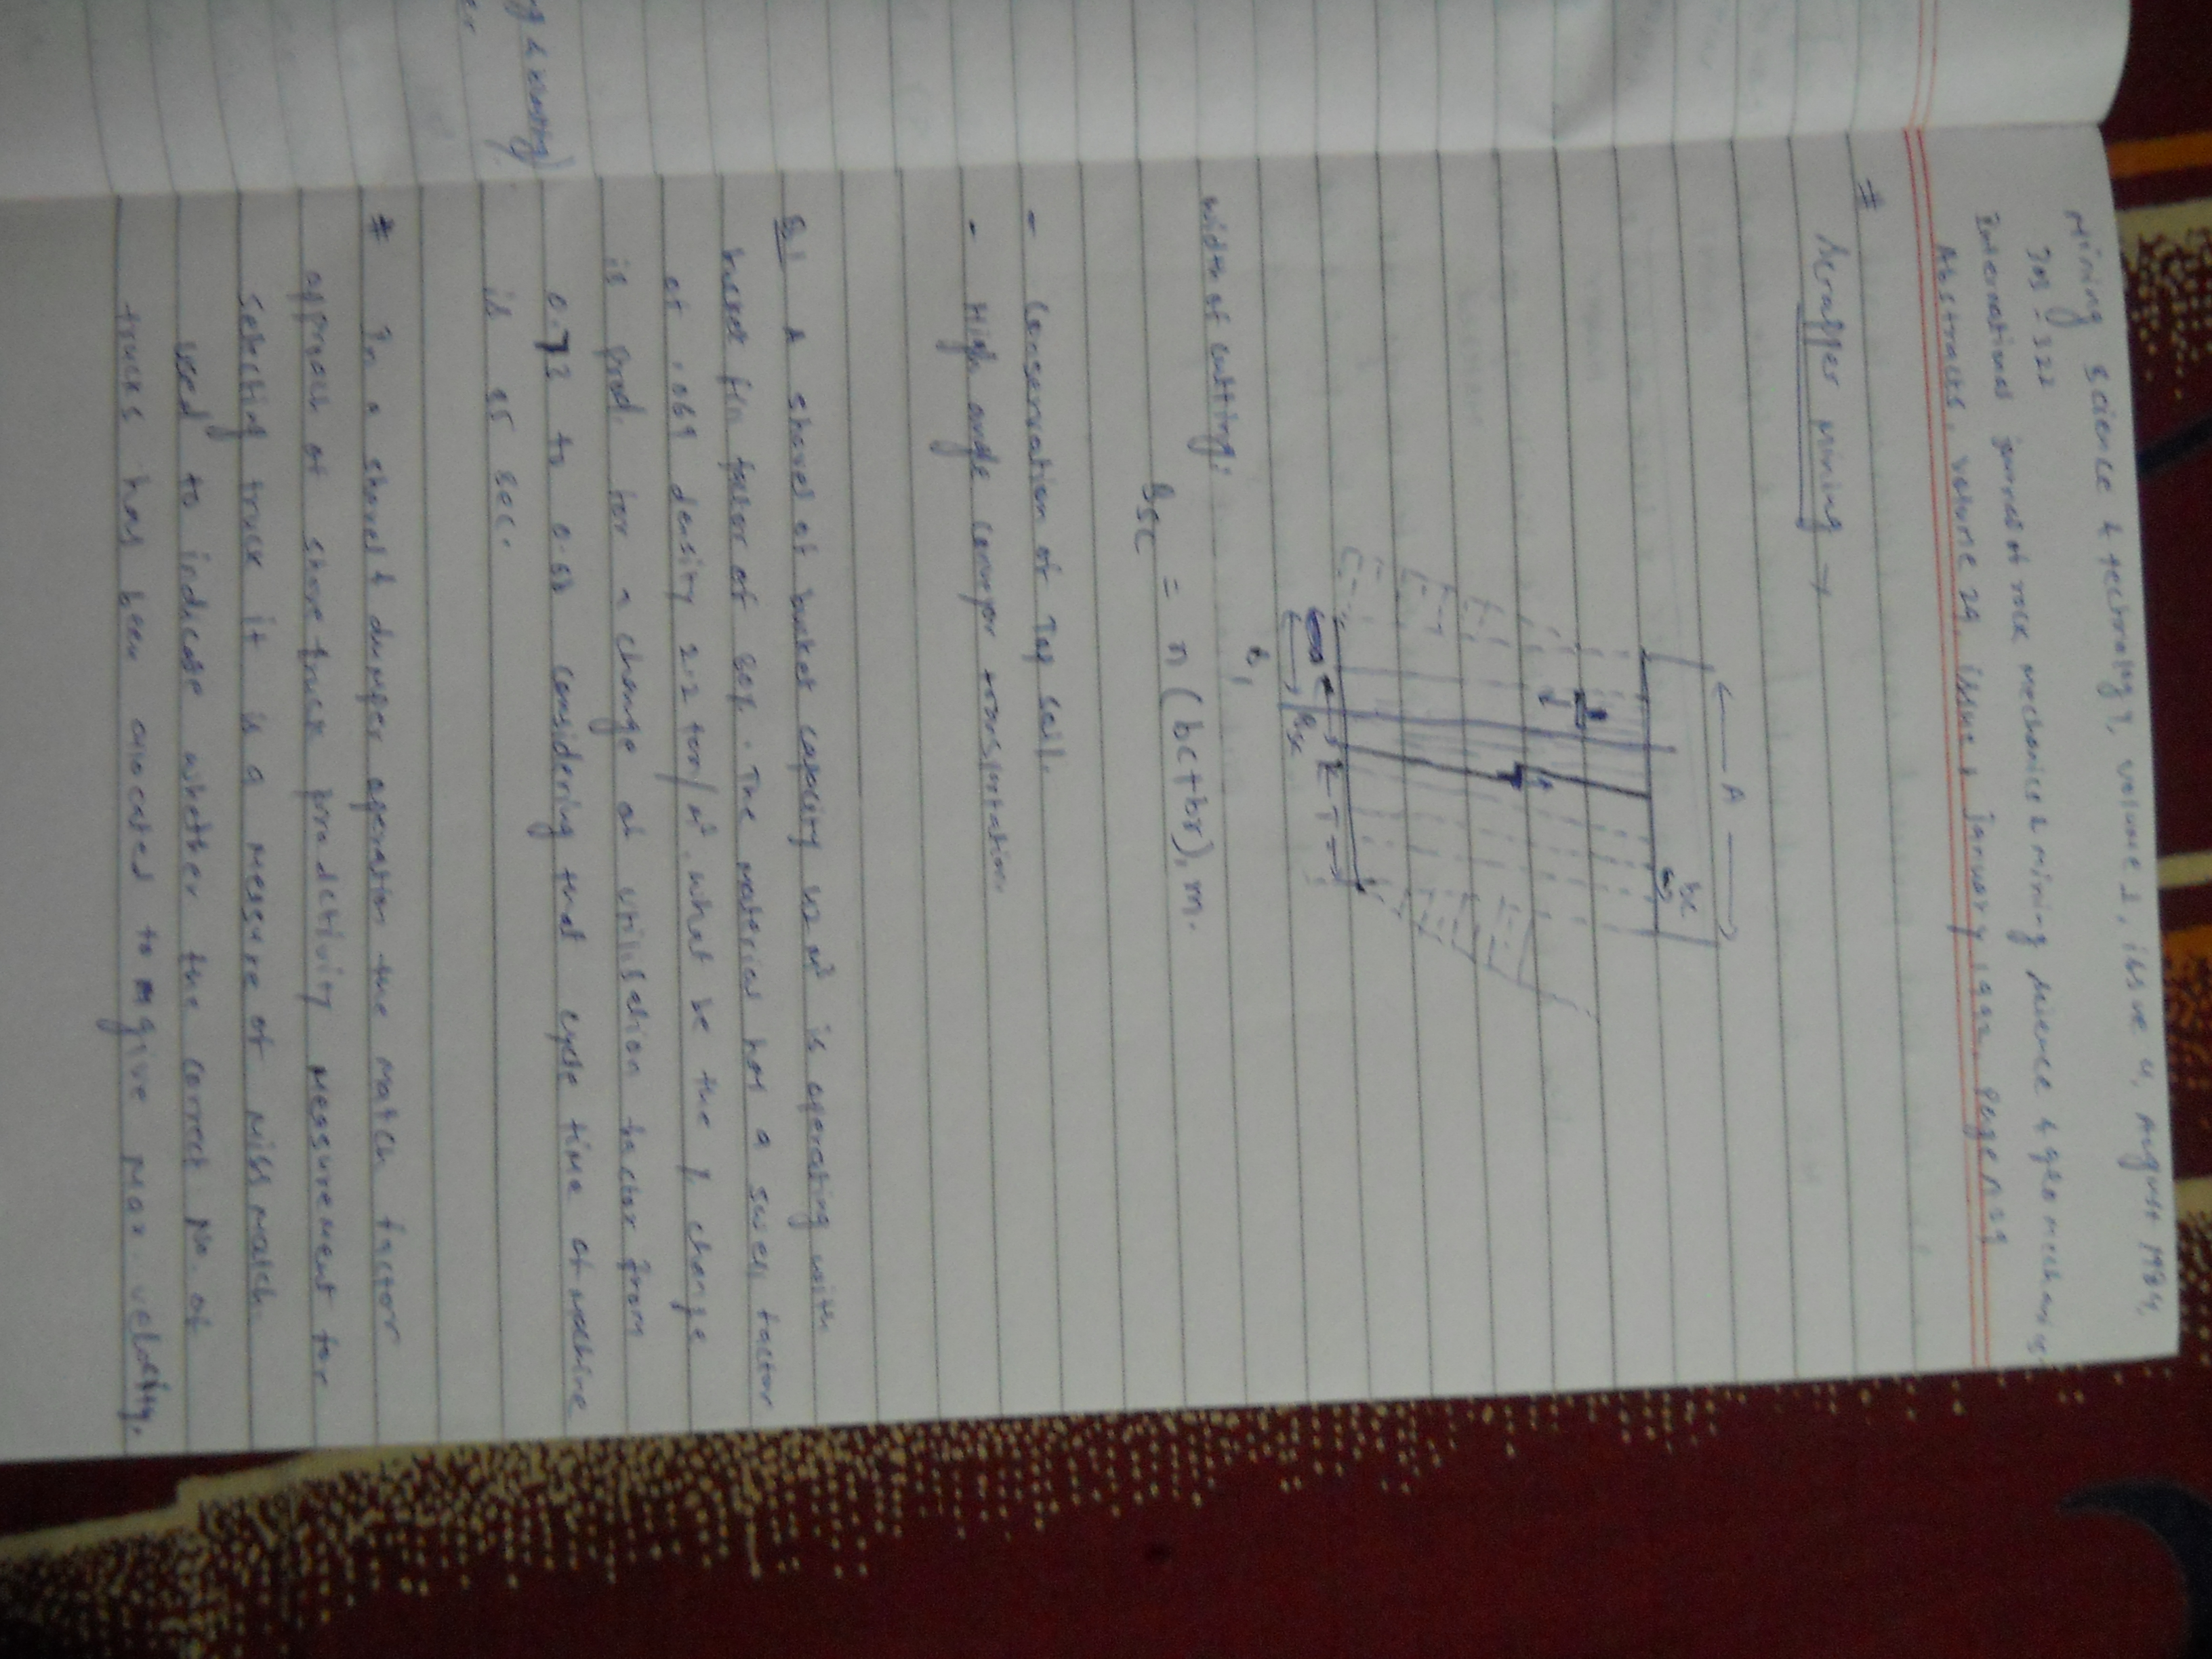 Mining science & technology, volume 1, issue 4, August 1984,
305-322
International journal of rock mechanics & mining science & geo mechanics
Abstracts, volume 29, issue 1 january 1992, page n 39
#
Scrapper mining →
← A →
bc
Bsc
B1
width of cutting:
Bsc = n (bc+br), m.
- Conservation of Top soil.
- High angle conveyor transportation.
Q1 A shovel of bucket capacity 42 m³ is operating with
bucket fill factor of 80%. The material has a swell factor
of .069 density 2.2 ton/m³. what be the % change
is prod. for a change of utilisation factor from
0.72 to 0.58 considering that cycle time of machine
is 85 sec.
# In a shovel & dumper operation the match factor
approach of shove-truck productivity measurement for
selecting truck it is a measure of miss match
used to indicate whether the correct no. of
trucks has been allocated to give max. velocity.
g & blasting)
er.